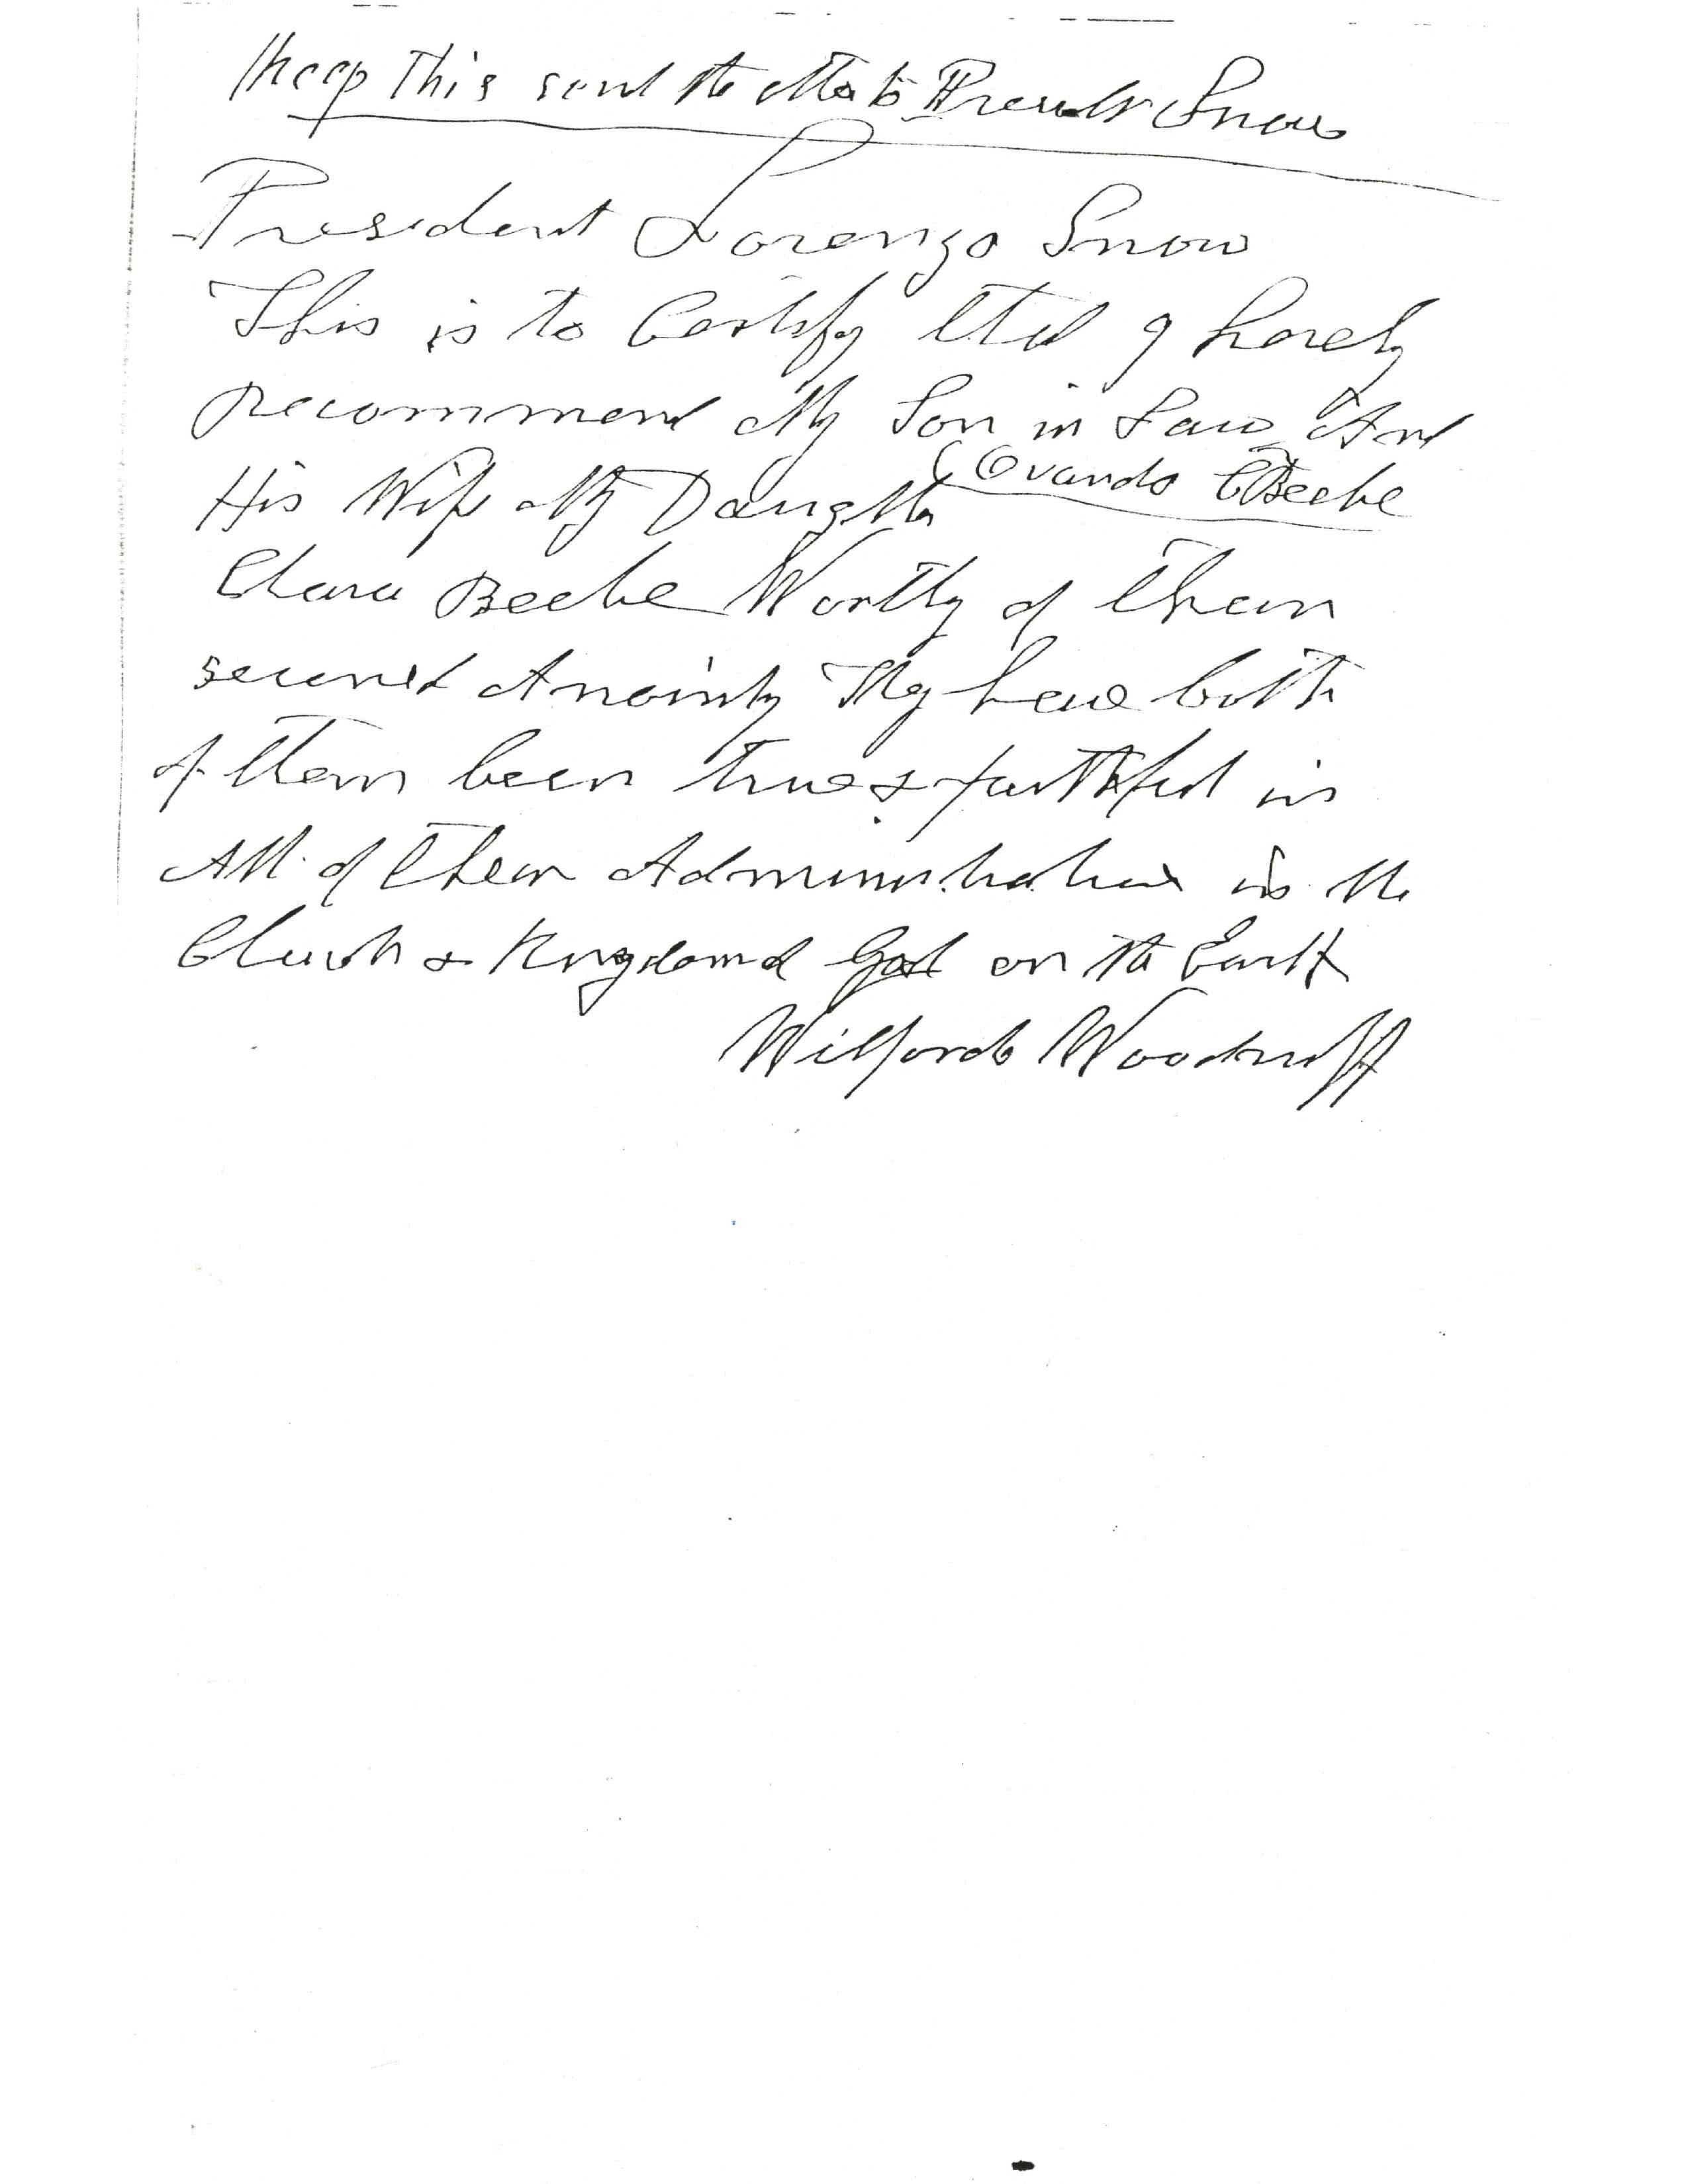 Keep This send the other to President Snow
President Lorenzo Snow
This is to Certify that I herely
recommend My Son in Law And
Ovando C Beebe
His Wife My Daughter
Clara Beebe Worthy of their
second Anointg They have both
of them been true & faithful in
All of their Administrations in the
Church & Kingdom of God on the Earth
Wilford Woodruff